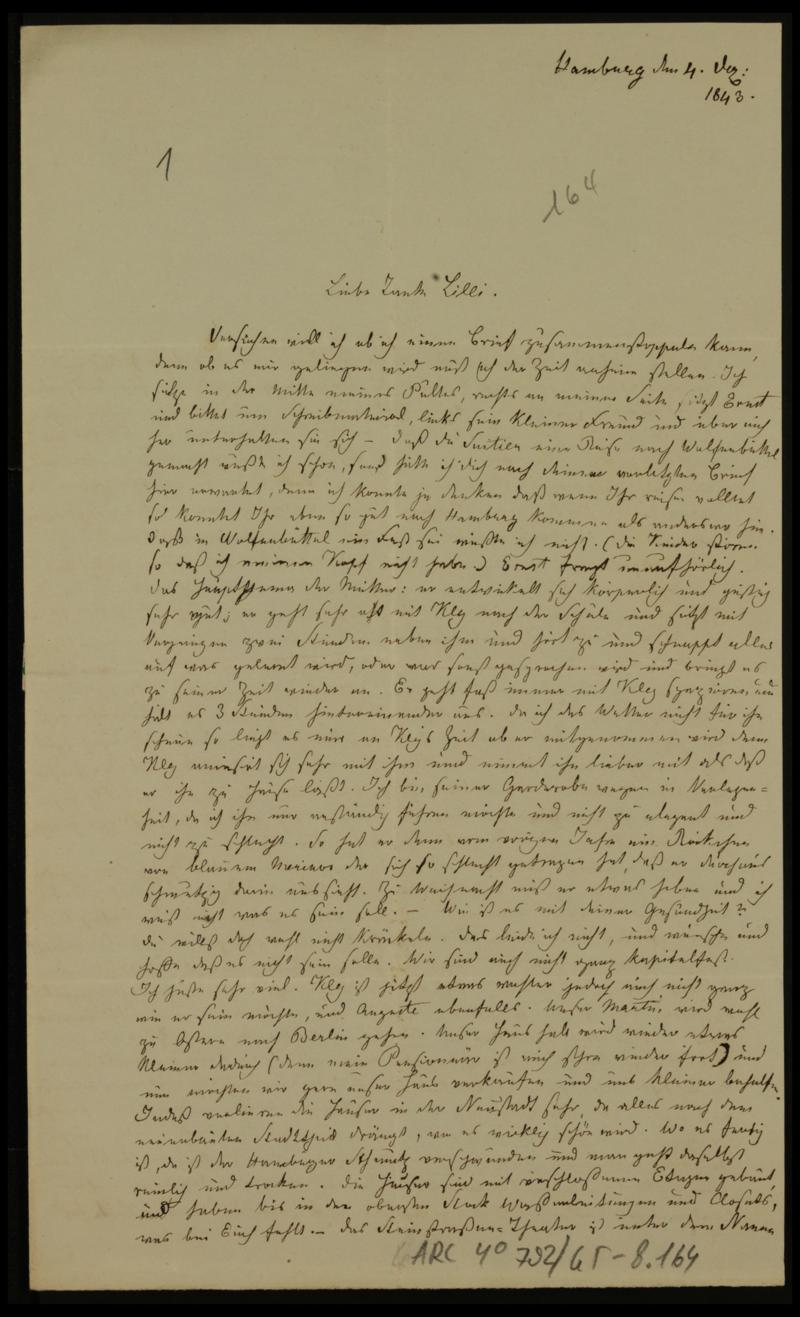 Hamburg den 4. Dez:
1843.
1
164
Liebe Tante Lilli.
Versuchen will ich ob ich einen Brief zusammenstoppeln kann,
denn ob es mir gelingen wird muß ich der Zeit anheim stellen. Ich
sitze in der Mitte meines Pultes, rechts an meiner Seite sitzt Ernst
und bittet um Schreibmaterial, links sein kleiner Freund und über mich
her unterhalten sie sich – daß du eine Reise nach Wolfenbüttel
gemacht wußte ich schon, sonst hätte ich dich nach deinem vorletzten Brief
hier erwartet, denn ich konnte ja denken daß wenn Ihr reisen wolltet
so konntet Ihr eben so gut nach Hamburg kommen als anderswo hin.
Daß in Wolfenbüttel ein Fest sei wußte ich nicht. (die Kinder stören
so daß ich meinen Kopf nicht habe) Ernst fragt unaufhörlich.
Das Hauptthema der Mutter: er entwickelt sich körperlich und geistig
sehr gut; er geht sehr oft mit Kley nach der Schule und sitzt mit
Vergnügen zwei Stunden neben ihm und hört zu und schnappt alles
auf was gelernt wird, oder was sonst gesprochen wird und bringt es
zu seiner Zeit wieder an. Er geht fast immer mit Kley spazieren und
hält es 3 Stunden hintereinander aus. Da ich das Wetter nicht für ihn
scheue so liegt es nur an Kleys Zeit ob er mitgenommen wird denn
Kley amüsirt sich sehr mit ihm und nimmt ihn lieber mit als daß
er ihn zu Hause läßt. Ich bin seiner Garderobe wegen in Verlegen=
heit, da ich ihn nur anständig führen möchte und nicht zu elegant und
nicht zu schlecht. So hat er denn vom vorigen Jahr ein Röckchen
von blauem Merino der sich so schlecht getragen hat, daß er durchaus
schmutzig darin aussieht. Zu Weihnacht muß er etwas haben und ich
weiß nicht was es sein soll. – Wie ist es mit deiner Gesundheit?
du willst doch wohl nicht kränkeln. Das leide ich nicht, und wünsche und
hoffe daß es nicht sein solle. Wir sind auch nicht ganz kapitelfest.
Ich huste sehr viel. Kley ist jetzt etwas wohler jedoch auch nicht ganz
wie er sein möchte, und Auguste ebenfalls. Unser Martin wird wohl
zu Ostern nach Berlin gehen. Unser Haushalt wird wieder etwas
kleiner dadurch (denn mein Pensionair ist auch schon wieder fort) und
nun möchten wir gern unser Haus verkaufen und uns kleiner behelfen.
Indeß verlieren die Häuser in der Neustadt sehr, da alles nach dem
neuerbauten Stadttheil drängt, wo es wirklich schön wird. Wo es fertig
ist, da ist der Hamburger Schmutz verschwunden und man geht daselbst
reinlich und trocken. Die Häuser sind mit verschloßenen Etagen gebaut,
und haben bis in den obersten Stock Waßerleitungen und Closets,
was bei Euch fehlt. – das Steinstraßen=Theater ist unter dem Namen
ARC 4° 792/G5-8.164